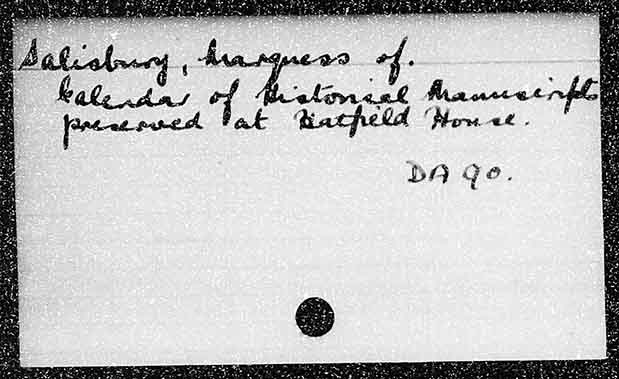 Salisbury, Marquess of.
Calendar of Historical Manuscripts
preserved at Hatfield House.
DA 90.